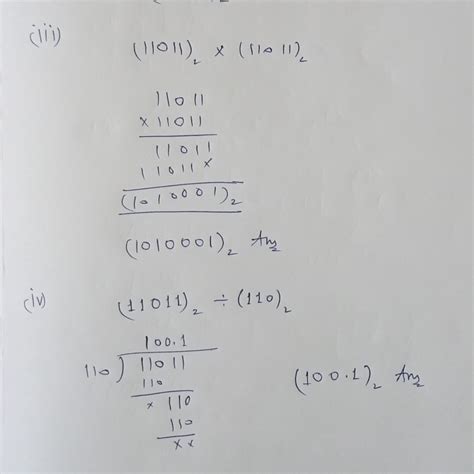 (iii)
(11011)₂ × (11011)₂
11011
× 11011
11011
11011×
(1010001)₂
(1010001)₂ Ans
(iv)
(11011)₂ ÷ (110)₂
100.1
110 ) 11011
110
× 110
110
××
(100.1)₂ Ans